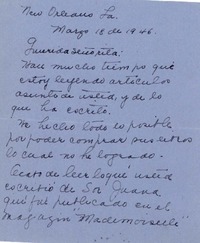 New Orleans La.
Marzo 18 de 1946.
Querida señorita:
Hace mucho tiempo que
estoy leyendo artículos
de usted, y de lo
que ha escrito.
He hecho todo lo posible
por poder comprar sus libros
lo cual no he logrado.
Acabo de leer lo que usted
escribió de Sor Juana
que fué publicado en el
magazín "Mademoiselle"